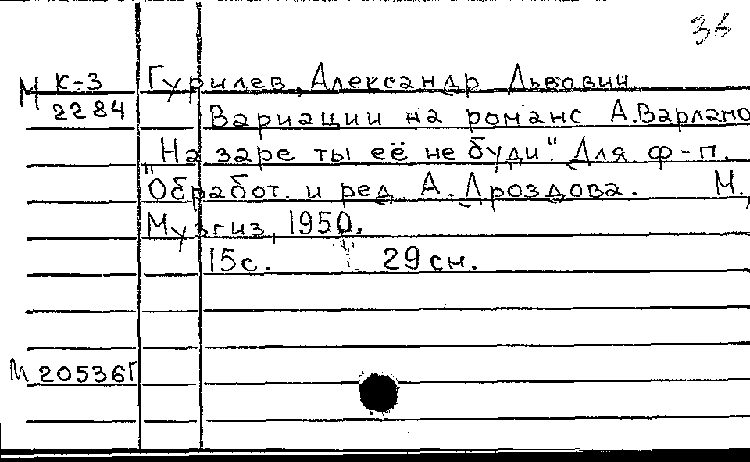 36
М К-3 Гурилев, Александр Львович
2284 Вариации на романс А.Варламо
„На заре ты её не буди". Для ф-п.
Обработ. и ред. А. Дроздова. М.,
Музгиз, 1950.
15с. 29см.
М 20536Г